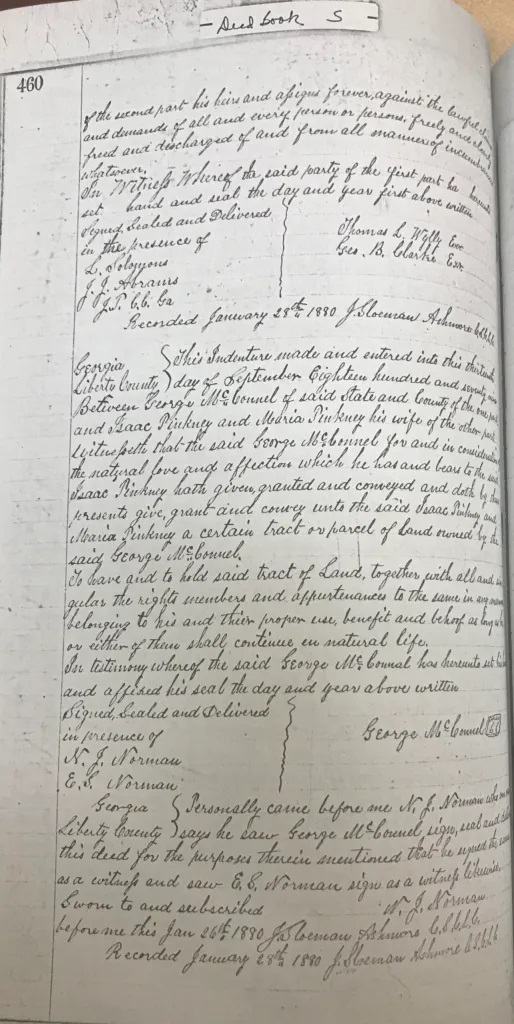 Deed book S
460
of the second part his heirs and assigns forever, against the lawful
and demands of all and every person or persons, freely and
freed and discharged of and from all manner of
whatsoever.
In Witness Whereof the said party of the first part ha hereunto
set hand and seal the day and year first above written
Signed, Sealed and Delivered
in the presence of
L. Solomons
J. J. Abrams
J.P. C.C. Ga
Thomas L. Wylly Exr
Geo. B. Clarke Exr
Recorded January 28th 1880 J. Sloeman Ashmore
Georgia
Liberty County
This Indenture made and entered into this
day of September Eighteen hundred and seventy
Between George McConnel of said State and County of the one part
and Isaac Pinkney and Maria Pinkney his wife of the other part
Witnesseth that the said George McConnel for and in consideration
the natural love and affection which he has and bears to the said
Isaac Pinkney hath given, granted and conveyed and doth by these
presents give, grant and convey unto the said Isaac Pinkney and
Maria Pinkney a certain tract or parcel of Land owned by the
said George McConnel.
To have and to hold said tract of Land, together with all and sin
gular the rights members and appurtenances to the same in any
belonging to his and thier proper use, benefit and behoof as long as
or either of them shall continue in natural life.
In testimony whereof the said George McConnal has hereunto set his
and affixed his seal the day and year above written
Signed, Sealed and Delivered
in presence of
N. J. Norman
E. S. Norman
George McConnel
Georgia
Liberty County
Personally came before me N. J. Norman who
says he saw George McConnel, sign, seal and
this deed for the purposes therein mentioned that he signed the same
as a witness and saw E. S. Norman sign as a witness likewise.
Sworn to and subscribed
N. J. Norman
before me this Jan 26th 1880 J. Sloeman Ashmore
Recorded January 28th 1880 J. Sloeman Ashmore